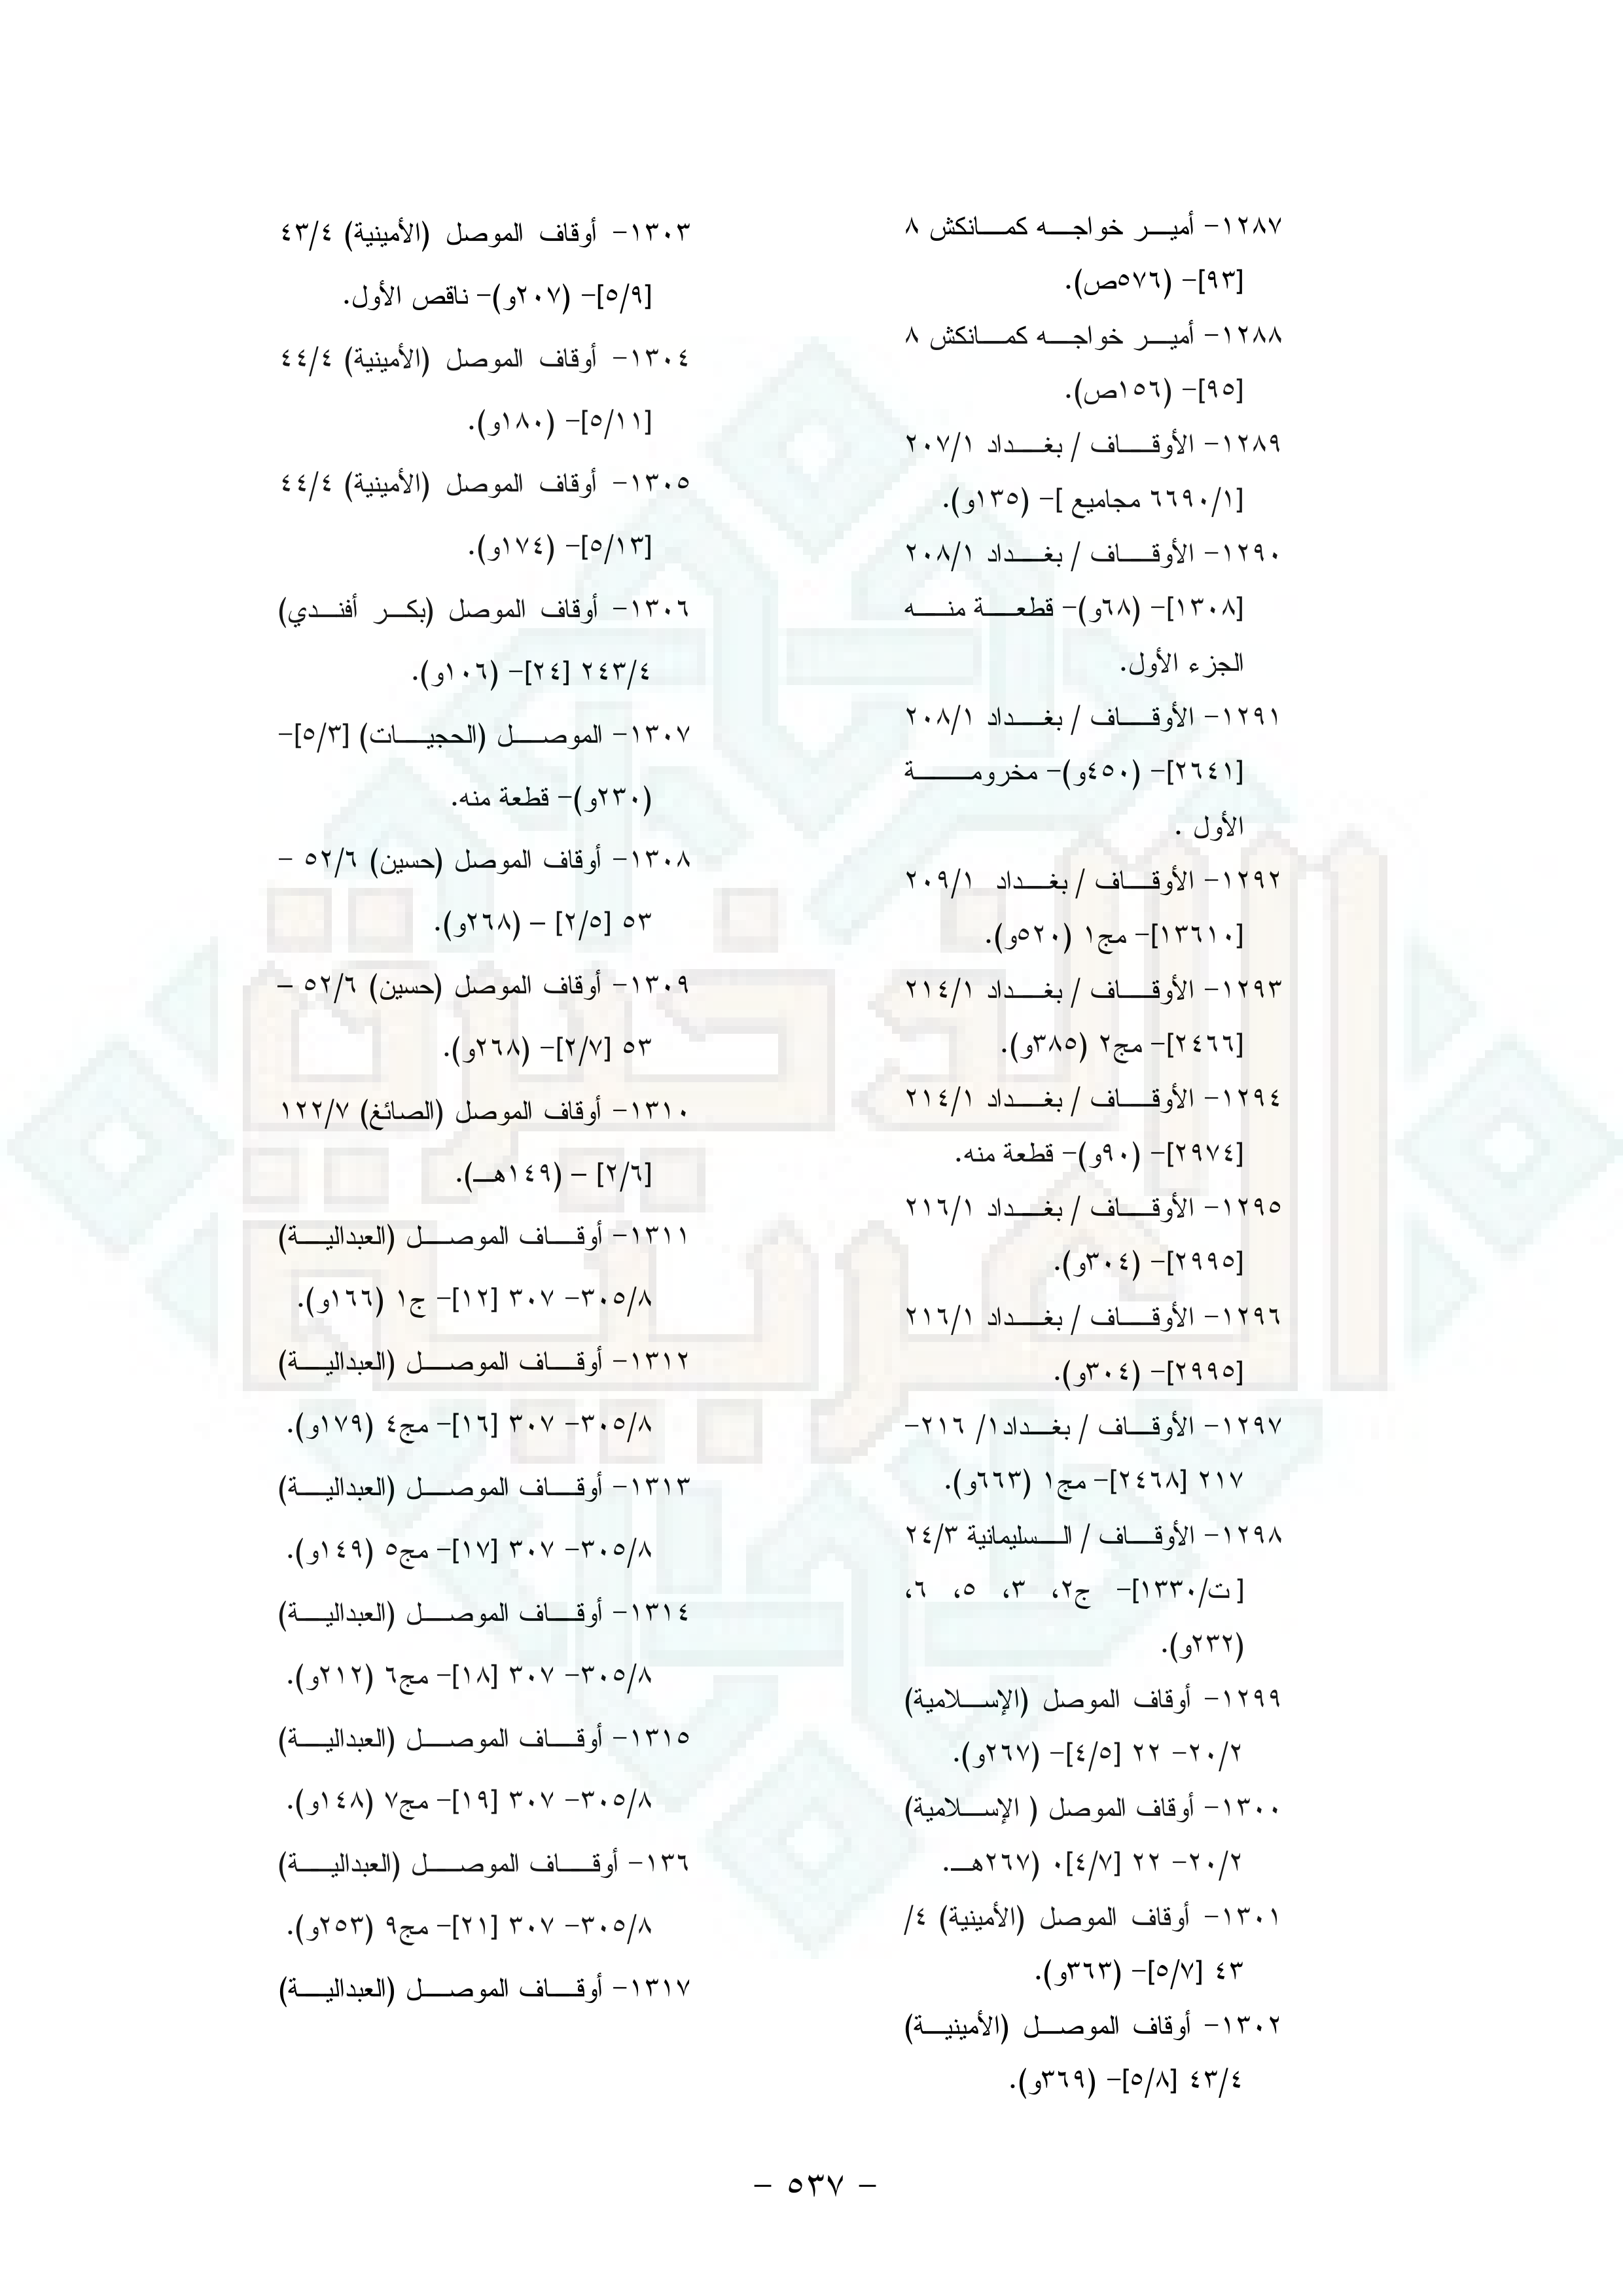 ١٢٨٧- أمير خواجه كمانكش ٨
[٩٣]- (٥٧٦ص).
١٢٨٨- أمير خواجه كمانكش ٨
[٩٥]- (١٥٦ص).
١٢٨٩- الأوقاف / بغداد ٢٠٧/١
[٦٦٩٠/١ مجاميع ]- (١٣٥و).
١٢٩٠- الأوقاف / بغداد ٢٠٨/١
[١٣٠٨]- (٦٨و)- قطعة منه
الجزء الأول.
١٢٩١- الأوقاف / بغداد ٢٠٨/١
[٢٦٤١]- (٤٥٠و)- مخرومة
الأول .
١٢٩٢- الأوقاف / بغداد ٢٠٩/١
[١٣٦١٠]- مج١ (٥٢٠و).
١٢٩٣- الأوقاف / بغداد ٢١٤/١
[٢٤٦٦]- مج٢ (٣٨٥و).
١٢٩٤- الأوقاف / بغداد ٢١٤/١
[٢٩٧٤]- (٩٠و)- قطعة منه.
١٢٩٥- الأوقاف / بغداد ٢١٦/١
[٢٩٩٥]- (٣٠٤و).
١٢٩٦- الأوقاف / بغداد ٢١٦/١
[٢٩٩٥]- (٣٠٤و).
١٢٩٧- الأوقاف / بغداد١/ ٢١٦-
٢١٧ [٢٤٦٨]- مج١ (٦٦٣و).
١٢٩٨- الأوقاف / السليمانية ٢٤/٣
[ ت/١٣٣٠]- ج٢، ٣، ٥، ٦،
(٢٣٢و).
١٢٩٩- أوقاف الموصل (الإسلامية)
٢٠/٢- ٢٢ [٤/٥]- (٢٦٧و).
١٣٠٠- أوقاف الموصل ( الإسلامية)
٢٠/٢- ٢٢ [٤/٧]٠ (٢٦٧هـ.
١٣٠١- أوقاف الموصل (الأمينية) ٤/
٤٣ [٥/٧]- (٣٦٣و).
١٣٠٢- أوقاف الموصل (الأمينية)
٤٣/٤ [٥/٨]- (٣٦٩و).
١٣٠٣- أوقاف الموصل (الأمينية) ٤٣/٤
[٥/٩]- (٢٠٧و)- ناقص الأول.
١٣٠٤- أوقاف الموصل (الأمينية) ٤٤/٤
[٥/١١]- (١٨٠و).
١٣٠٥- أوقاف الموصل (الأمينية) ٤٤/٤
[٥/١٣]- (١٧٤و).
١٣٠٦- أوقاف الموصل (بكر أفندي)
٢٤٣/٤ [٢٤]- (١٠٦و).
١٣٠٧- الموصل (الحجيات) [٥/٣]-
(٢٣٠و)- قطعة منه.
١٣٠٨- أوقاف الموصل (حسين) ٥٢/٦ -
٥٣ [٢/٥] – (٢٦٨و).
١٣٠٩- أوقاف الموصل (حسين) ٥٢/٦ –
٥٣ [٢/٧]- (٢٦٨و).
١٣١٠- أوقاف الموصل (الصائغ) ١٢٢/٧
[٢/٦] – (١٤٩هـ).
١٣١١- أوقاف الموصل (العبدالية)
٣٠٥/٨- ٣٠٧ [١٢]- ج١ (١٦٦و).
١٣١٢- أوقاف الموصل (العبدالية)
٣٠٥/٨- ٣٠٧ [١٦]- مج٤ (١٧٩و).
١٣١٣- أوقاف الموصل (العبدالية)
٣٠٥/٨- ٣٠٧ [١٧]- مج٥ (١٤٩و).
١٣١٤- أوقاف الموصل (العبدالية)
٣٠٥/٨- ٣٠٧ [١٨]- مج٦ (٢١٢و).
١٣١٥- أوقاف الموصل (العبدالية)
٣٠٥/٨- ٣٠٧ [١٩]- مج٧ (١٤٨و).
١٣٦- أوقاف الموصل (العبدالية)
٣٠٥/٨- ٣٠٧ [٢١]- مج٩ (٢٥٣و).
١٣١٧- أوقاف الموصل (العبدالية)
- ٥٣٧ -
الذخيرة
العربية